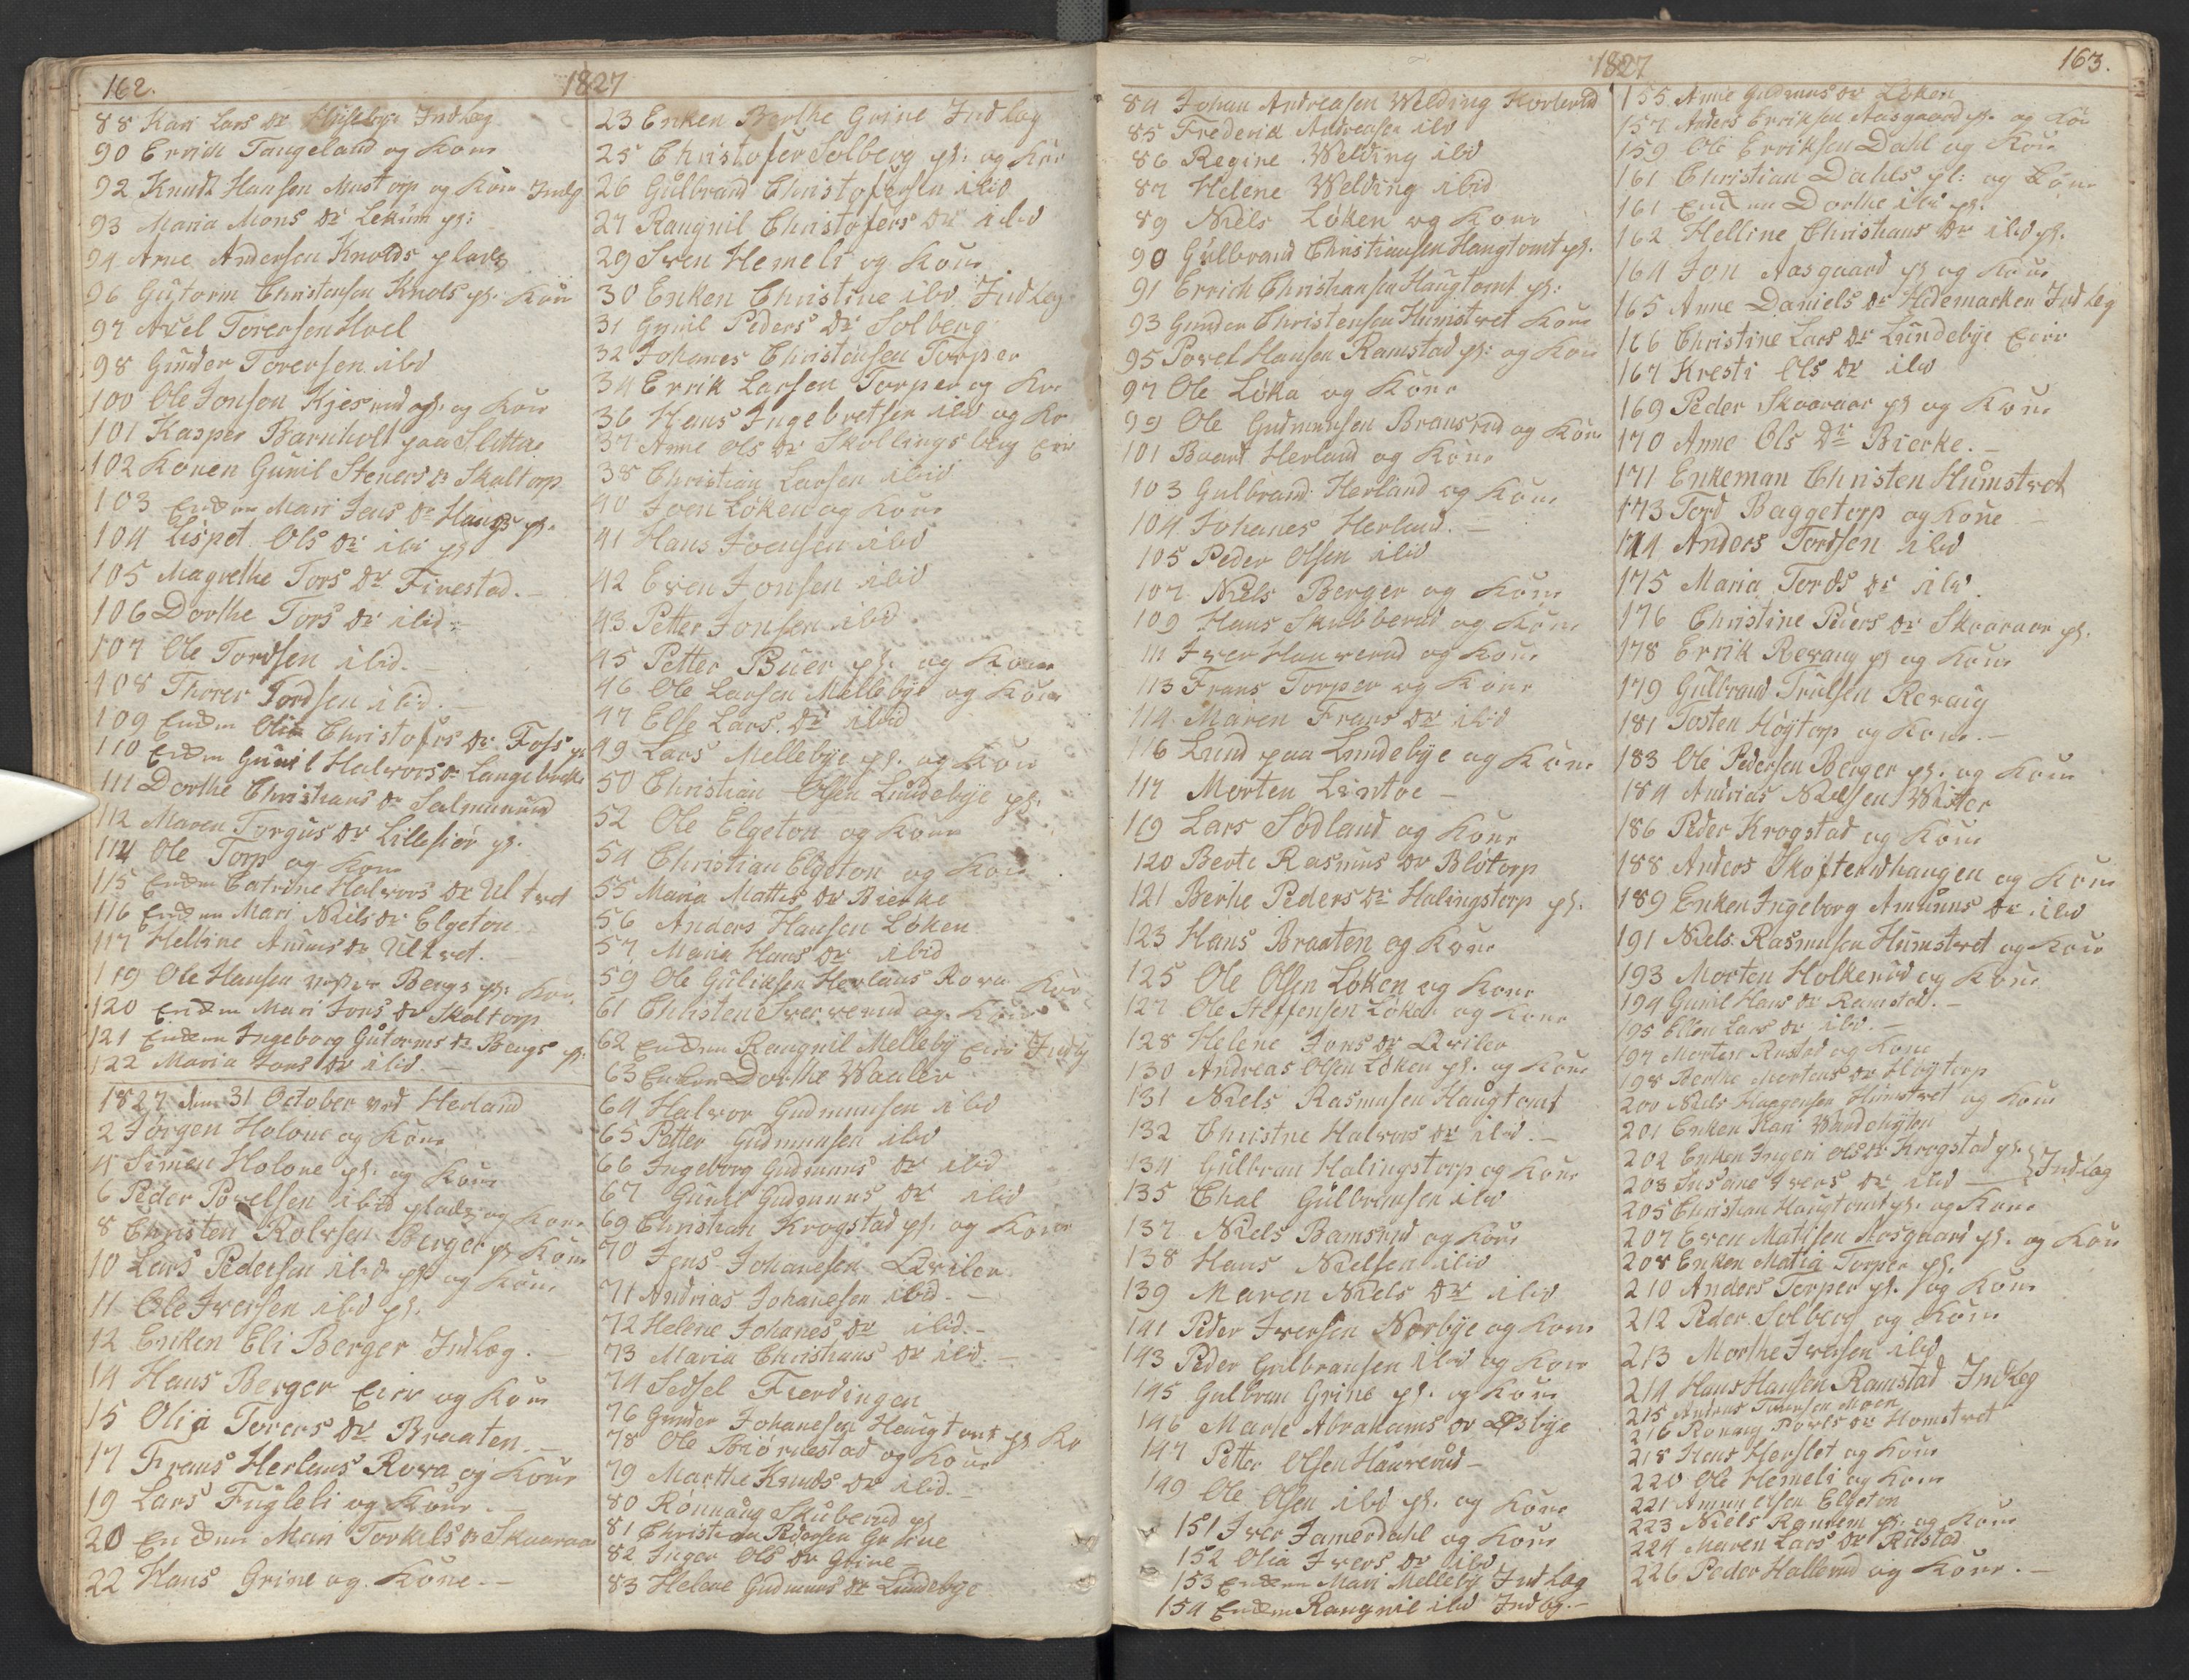 162.
1827
88 Kari Lars Dr Indlæg
90 Errick Tangeland og Kone
92 Knudt Hansen Mustorp og Kone Indlg
93 Maria Mons Dr Lekum pl:
94 Arne Andersen Knolds plads
96 Gutorm Christensen Knols pl: Kone
97 Axel Torersen Hvel
98 Gunder Torersen ibd
100 Ole Jonson Kjesrud pl: og Kone
101 Kasper Barnholt paa Slittu
102 Konen Gunil Steners Dr Skaltorp
103 Enken Mari Jens Dr Haugs pl.
104 Lispet Ols Dr ibi pl
105 Magrethe Tors Dr Finestad.-
106 Dorthe Tors Dr ibid-
107 Ole Tordsen ibid.
108 Thorer Tordsen ibid.-
109 Enken Olia Christofers Dr Foss pl
110 Enken Gunil Halvors Dr Langebrek
111 Dorthe Christians Dr Salmunrud
112 Maren Torgus Dr Lillesier pl.
114 Ole Torp og Kone
115 Enken Catrine Halvors Dr Ultvet
116 Enken Mari Niels Dr Elgeton
117 Helline Amuns Dr Ultvet.
119 Ole Hansen Berge pl: Kone
120 Enken Mari Jons Dr Skaltorp
121 Enken Ingeborg Gutorms Dr Bergs pl:
122 Maria Jons Dr ibid.-
1827 den 31 October ved Herland
2 Jörgen Holone og Kone
4 Simen Holone pl. og Kone
6 Peder Povelsen ibid plads og Kone
8 Christen Rolvsen Berger pl Kone
10 Lars Pedersen ibd pl og Kone
11 Ole Iversen ibd pl.
12 Enken Eli Berger Indlæg.-
14 Hans Berger Eier og Kone
15 Olia Torers Dr Braaten.-
17 Frans Herlans Rova og Kone
19 Lars Fugleli og Kone.-
20 Enken Mari Torkels Dr Skaaraar
22 Hans Grine og Kone.-
23 Enken Berthe Grine Indlæg
25 Christofer Solberg pl: og Kone
26 Gulbrand Christofersen ibid
27 Raugnil Christofers Dr ibid
29 Sven Hemeli og Kone
30 Enken Christine ibd Indlæg
31 Gunil Peders Dr Solberg
32 Johanes Christensen Torper
34 Errik Larsen Torper og Ko
36 Hans Ingebretsen ibd og Ko
37 Anne Ols Dr Skollingsberg Eier
38 Christian Larsen ibid
40 Joen Löken og Kone
41 Hans Joensen ibd
42 Even Jonsen ibid
43 Petter Jonsen ibid
45 Petter Buer pl. og Kone
46 Ole Larsen Mellebye og Kone
47 Else Lars Dr ibid
49 Lars Mellebye pl. og Kone
50 Christian Olsen Lundebye pl.
52 Ole Elgeton og Kone
54 Christian Elgeton og Kone
55 Maria Mattis Dr Bierke
56 Anders Hansen Löken
57 Maria Hans Dr ibid
59 Ole Guliksen Herlans Rova Kone
61 Christen Sververud og Kone
62 Enken Raugnil Melleby Eier Indlg
63 Enken Dorthe Waaler
64 Halvor Gudmunsen ibd
65 Petter Gudmunsen ibd
66 Ingeborg Gudmuns Dr ibid
67 Gunil Gudmuns Dr ibid
69 Christian Krogstad pl. og Kone
70 Jens Johanesen Qviler
71 Andrias Johanesen ibid.-
72 Helene Johanes Dr ibid.-
73 Maria Christians Dr ibid.-
74 Sedsel Fierdingen
76 Gunder Johanesen Haugtomt pl Ko
78 Ole Biörnestad og Kone
79 Marthe Knuds Dr ibid.
80 Rönnaug Skuberud pl
81 Christian Pedersen Grine
82 Inger Ols Dr Grine-
83 Helene Gudmuns Dr Lundebye
1827
163.
84 Johan Andreasen Welding Korterud
85 Frederik Andreasen ibd
86 Regine Welding ibid
87 Helene Welding ibid
89 Niels Löken og Kone
90 Gulbrand Christiansen Haugtomt pl.
91 Errich Christiansen Haugtomt pl.
93 Gunder Christensen Humstvet Kone
95 Povel Hansen Ramstad pl: og Kone
97 Ole Löka og Kone
99 Ole Gudmunsen Bransrud og Kone
101 Baard Herland og Kone
103 Gulbrand Herland og Kone
104 Johanes Herland.-
105 Peder Olsen ibid
107 Niels Berger og Kone
109 Hans Skubberud og Kone
111 Iver Haurerud og Kone
113 Frans Torper og Kone
114 Maren Frans Dr ibid
116 Lund paa Lundebye og Kone
117 Morten Lintoe-
119 Lars Södland og Kone
120 Berte Rasmus Dr Blötorp
121 Berthe Peders Dr Halingstorp pl.
123 Hans Braaten og Kone
125 Ole Olsen Löken og Kone
127 Ole Steffensen Löka og Kone
128 Helene Jons Dr Qviler
130 Andreas Olsen Löken pl. og Kone
131 Niels Rasmusen Haugtomt
132 Christne Halvors Dr ibid.-
134 Gulbran Halingstorp og Kone
135 Chal Gulbransen ibd
137 Niels Bamsrud og Kone
138 Hans Nielsen ibid
139 Maren Niels Dr ibid
141 Peder Iversen Norbye og Kone
143 Peder Gulbransen ibid og Kone
145 Gulbran Grine pl. og Kone
146 Marie Abrahams Dr Øsbye
147 Petter Olsen Haurerud-
149 Ole Olsen ibd pl. og Kone
151 Iver Jamerdahl og Kone
152 Olia Ivers Dr ibd
153 Enken Mari Melleby Indlæg
154 Enken Raugnil ibd Indlg.-
155 Anne Gudmus Dr Löken
157 Anders Erriksen Aasgaard pl. og Ko
159 Ole Erriksen Dahl og Kone
161 Christian Dahls pl: og Kone
161 Enken Dorthe ibi pl.
162 Helline Christians Dr ibd pl.
164 Jon Aasgaard pl og Kone
165 Anne Daniels Dr Hedemarken Indlæg
166 Christine Lars Dr Lundebye Eier
167 Kresti Ols Dr ibd
169 Peder Skaaraar pl og Kone
170 Anne Ols Dr Bierke.-
171 Enkeman Christen Humstvet
173 Tord Baggetorp og Kone-
174 Anders Tordsen ibd
175 Maria Tords Dr ibd.
176 Christine Peders Dr Skaaraar pl.
178 Errik Revaug pl og Kone
179 Gulbrand Trulsen Revaug
181 Tosten Höytorp og Kone.-
183 Ole Pedersen Berger pl. og Kone
184 Andrias Nielsen Wister
186 Peder Krogstad og Kone
188 Anders Skofterudhaugen og Kone
189 Enken Ingeborg Amunns Dr ibd
191 Niels Rasmusen Humstvet og Kone
193 Morten Holkerud og Kone
194 Gunil Hans Dr Ramstad.-
195 Ellen Lars Dr ibd.-
197 Morten Rustad og Kone
198 Berthe Mortens Dr Höytorp
200 Niels Haagensen Humstvet og Kone
201 Enken Kari
202 Enken Ingeri Ols Dr Krogstad pl.
203 Susane Ivers Dr ibd — } Indlæg
205 Christian Haugtomt pl. og Kone
207 Even Matisen Aasgaard pl. og Kone
208 Enken Matia Torper pl.
210 Anders Torper pl. og Kone
212 Peder Solberg og Kone
213 Morthe Iversen ibd
214 Hans Hansen Ramstad Indlæg
215 Andreas Moen
216 Ronaug Povels Dr Homstvet
218 Hans Herslet og Kone
220 Ole Hemeli og Kone
221 Amun Olsen Elgeton
223 Niels Ramsem pl. og Kone
224 Maren Lars Dr Rustad
226 Peder Hallerud og Kone.-